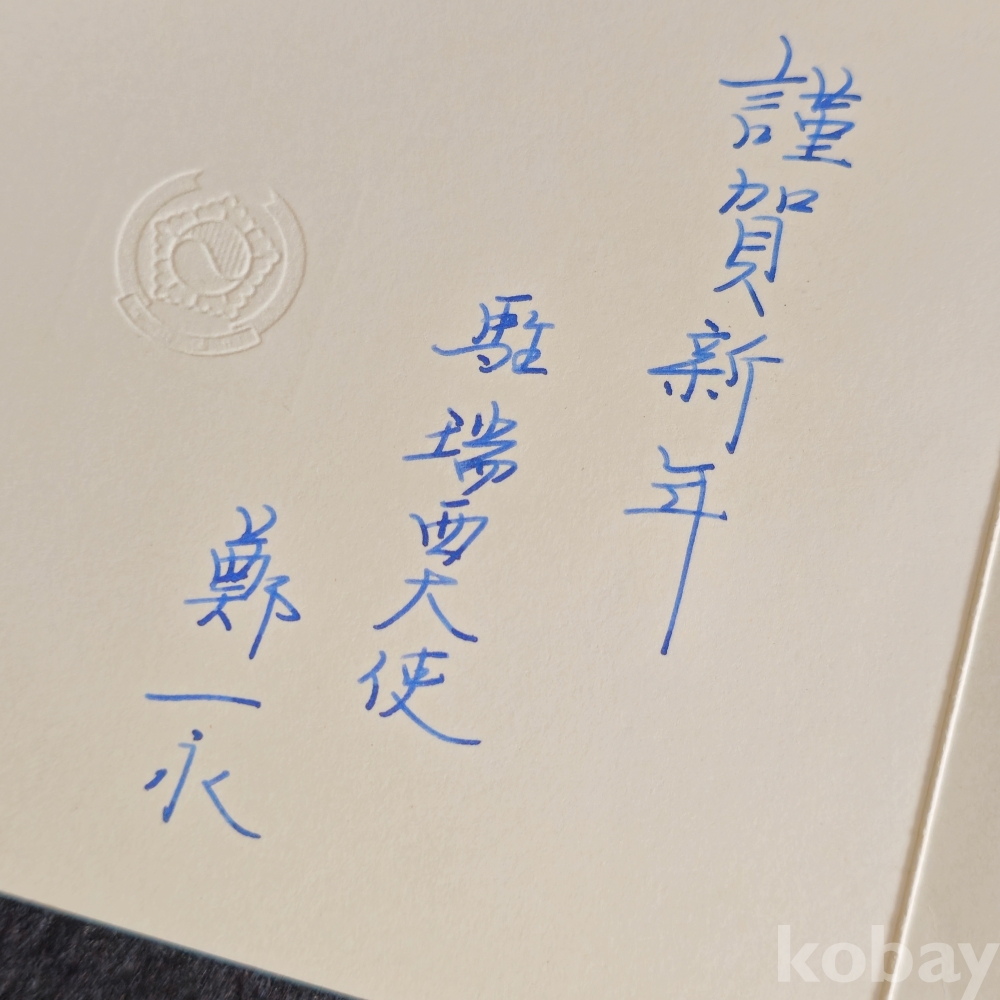 謹賀新年
駐瑞西大使
鄭一永
kobay